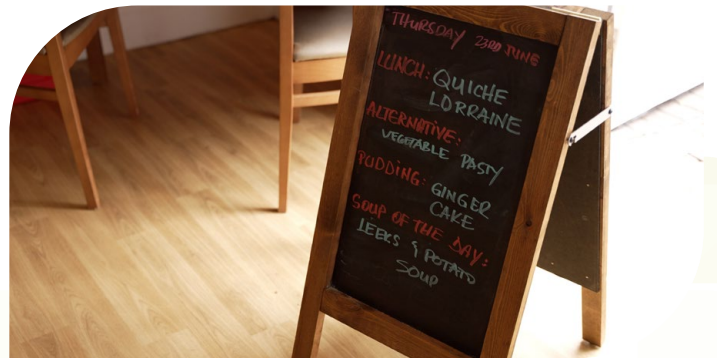 THURSDAY 23RD JUNE
LUNCH: QUICHE
LORRAINE
ALTERNATIVE:
VEGETABLE PASTY
PUDDING: GINGER
CAKE
SOUP OF THE DAY:
LEEKS & POTATO
SOUP